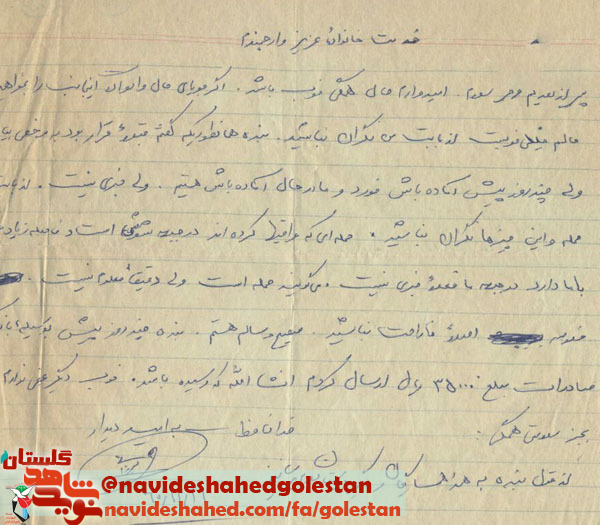 خدمت خانواده عزیز و ارجمندم
پس از تقدیم عرض سلام. امیدوارم حال همگی خوب باشد. اگر جویای حال و احوال اینجانب را بخواهید
حالم خیلی خوبست از بابت من نگران نباشید. بنده همانطوریکه گفتم قبلاً قرار بود به مرخصی بیا
ولی چند روز پیش آماده باش خورد و ما در حال آماده باش هستیم. ولی خبری نیست. از بابت
حمله و این چیزها نگران نباشید. حمله‌ای که عراقیها کرده‌اند در جبهه شوش است و فاصله زیادی
با ما دارد در جبهه ما فعلاً خبری نیست میگویند حمله است ولی دقیقاً معلوم نیست.
اصلاً ناراحت نباشید. صحیح و سالم هستم. بنده چند روز پیش بوسیله بانک
صادرات مبلغ ۳۵۰۰۰ ریال ارسال کردم انشاءالله که رسیده باشد. خوب دیگر عرضی ندارم
بجز سلامتی همگی.
خدا حافظ به امید دیدار
از قول بنده به
گلستان
نوید شاهد
@navideshahedgolestan
navideshahed.com/fa/golestan